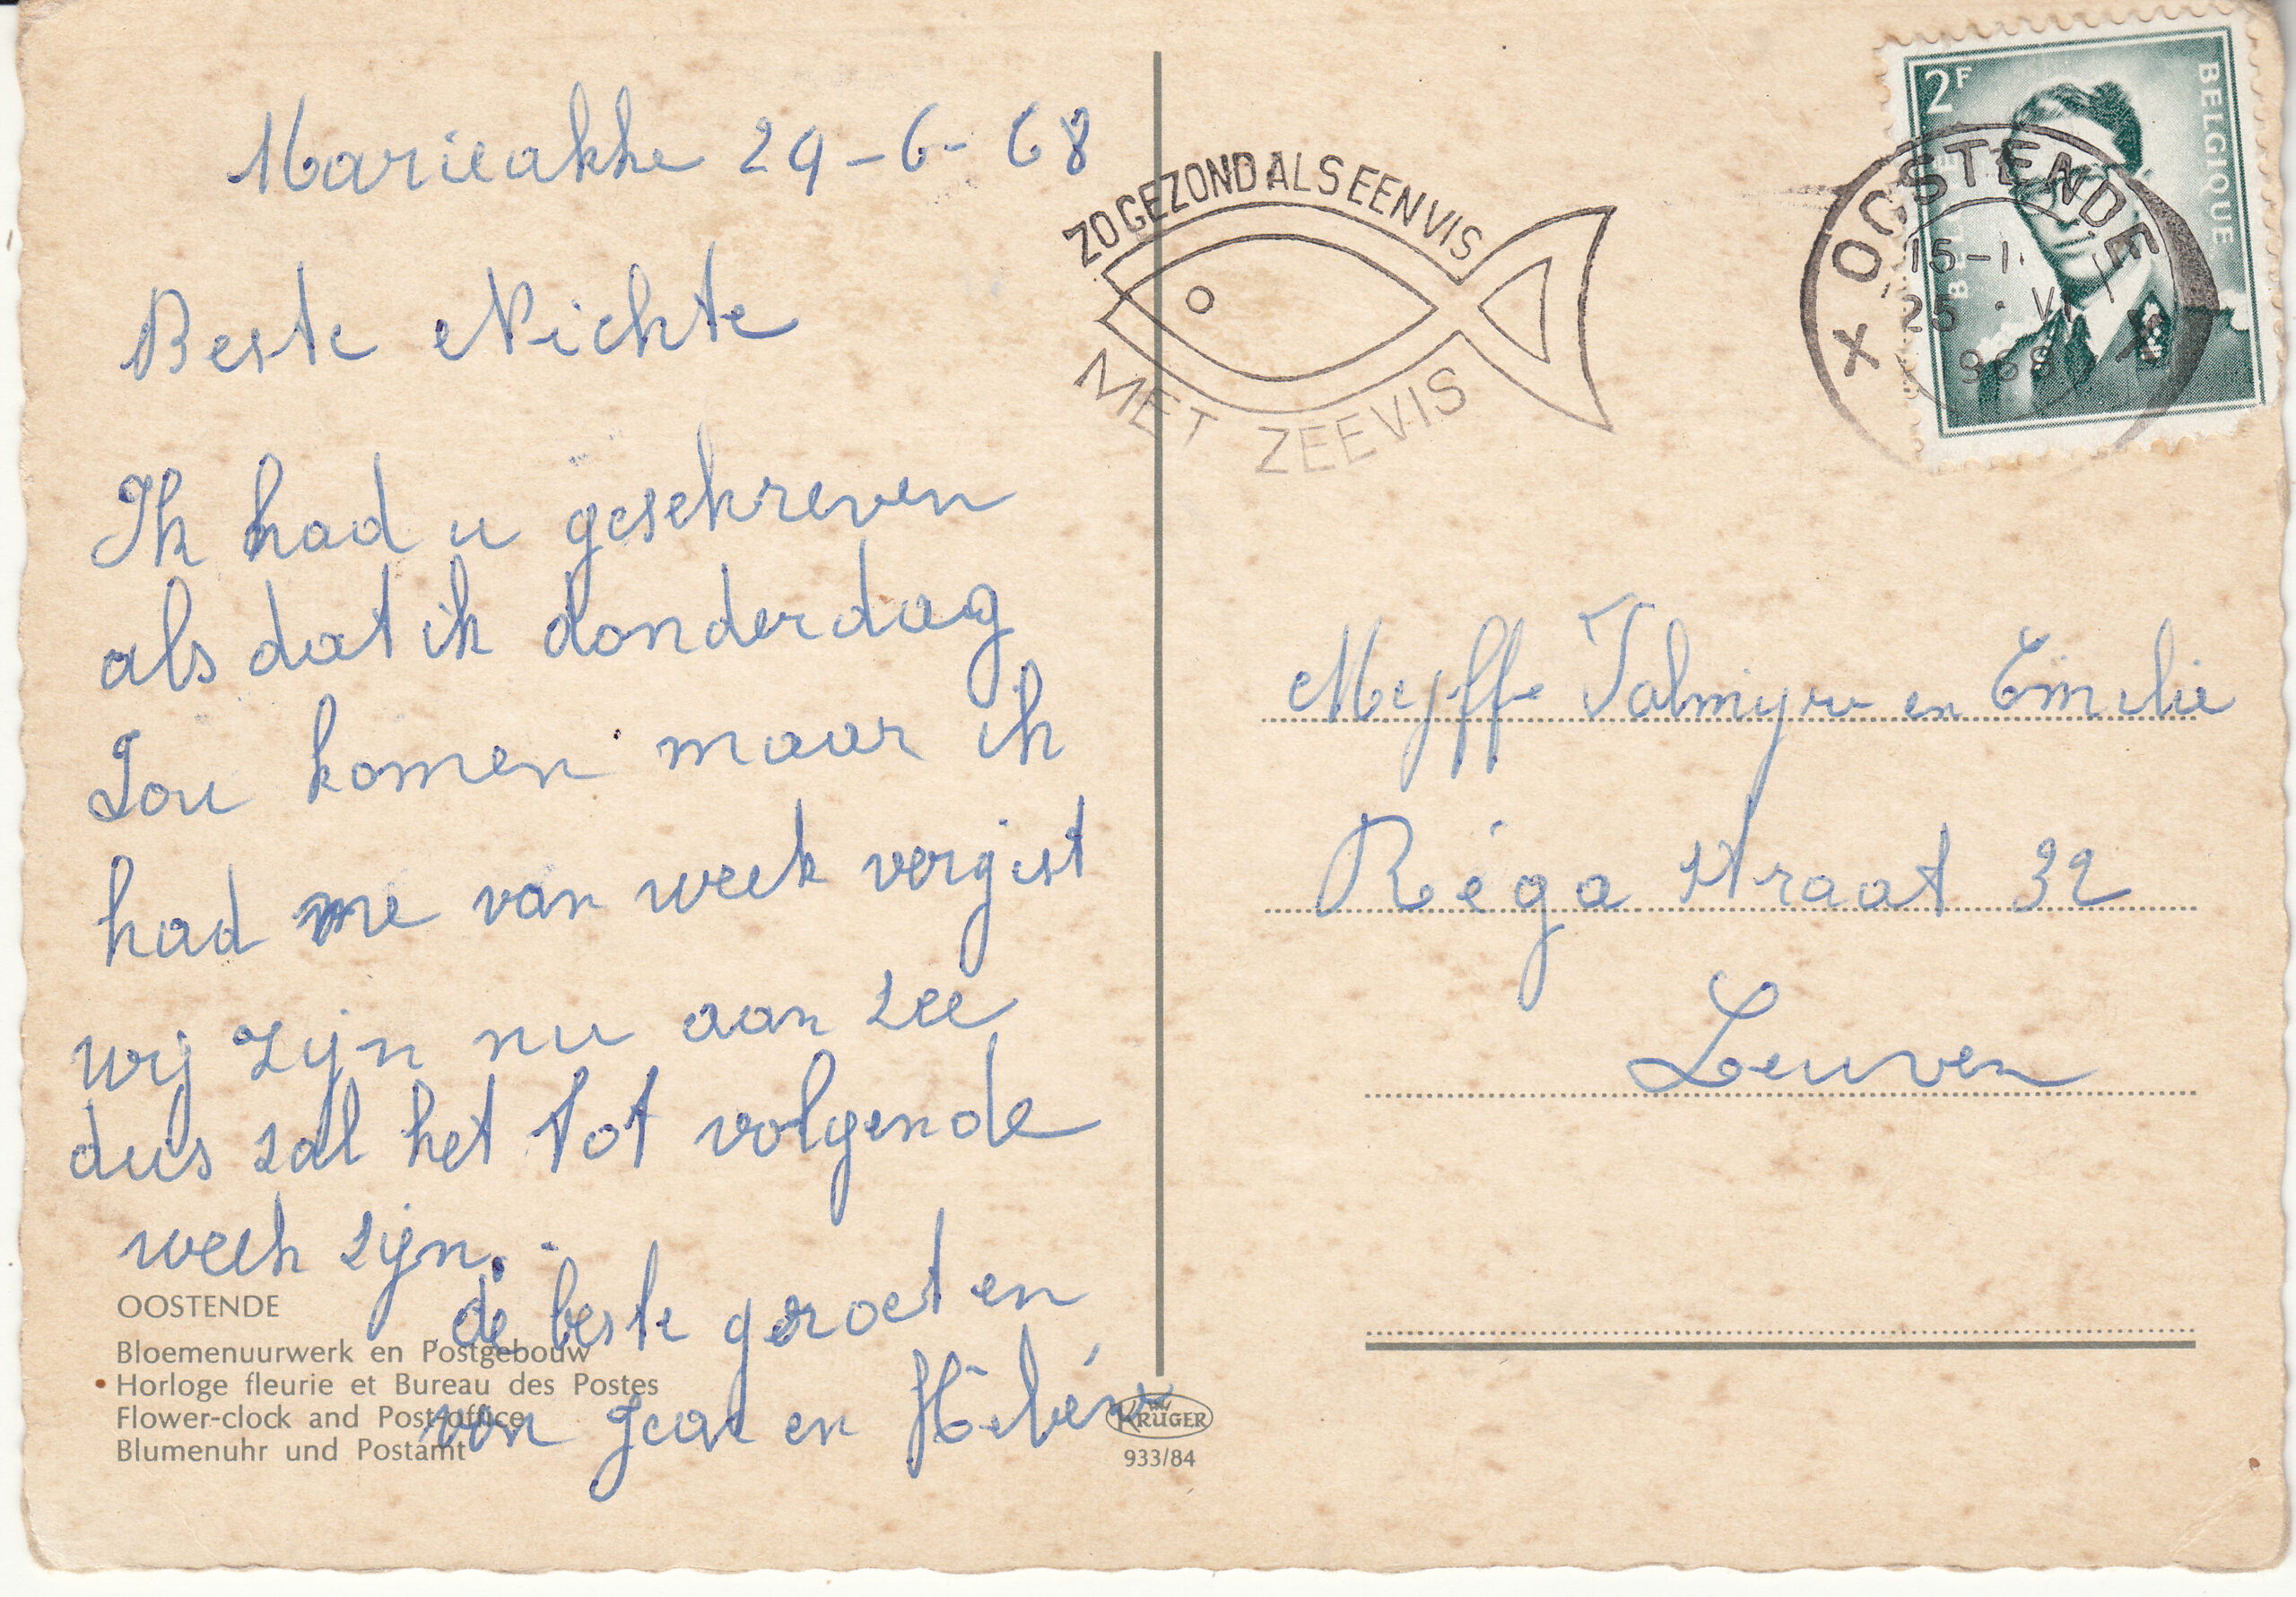 Marieakke 29-6-68
Beste Nichte
Ik had u geschreven
als dat ik donderdag
Zou komen maar ik
had me van week vergist
wij zijn nu aan zee
dus zal het tot volgende
week zijn.
de beste geroeten
van Jean en Hélène
OOSTENDE
Bloemenuurwerk en Postgebouw
Horloge fleurie et Bureau des Postes
Flower-clock and Post-office
Blumenuhr und Postamt
KRÜGER
933/84
ZO GEZOND ALS EEN VIS
MET ZEEVIS
2F
BELGIQUE
X OOSTENDE X
25 VI
968
Mejffe Talmyre en Emilie
Réga straat 32
Leuven